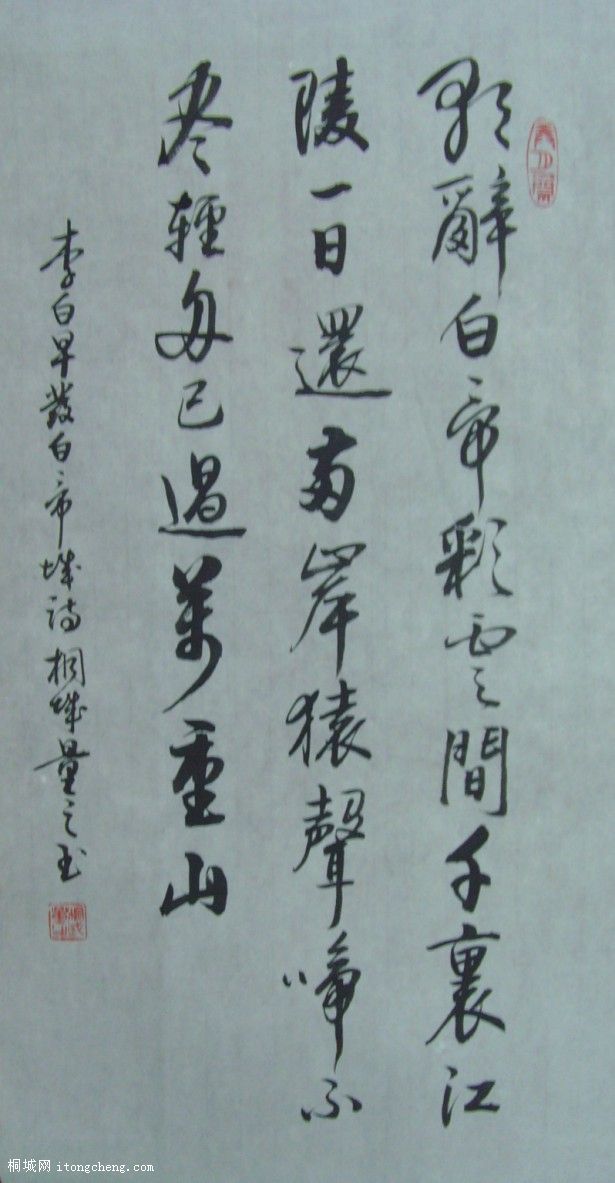 朝辭白帝彩雲間千裏江
陵一日還兩岸猿聲啼不
尽輕舟已過萬重山
李白早發白帝城詩 桐城量之書
桐城网 itongcheng.com